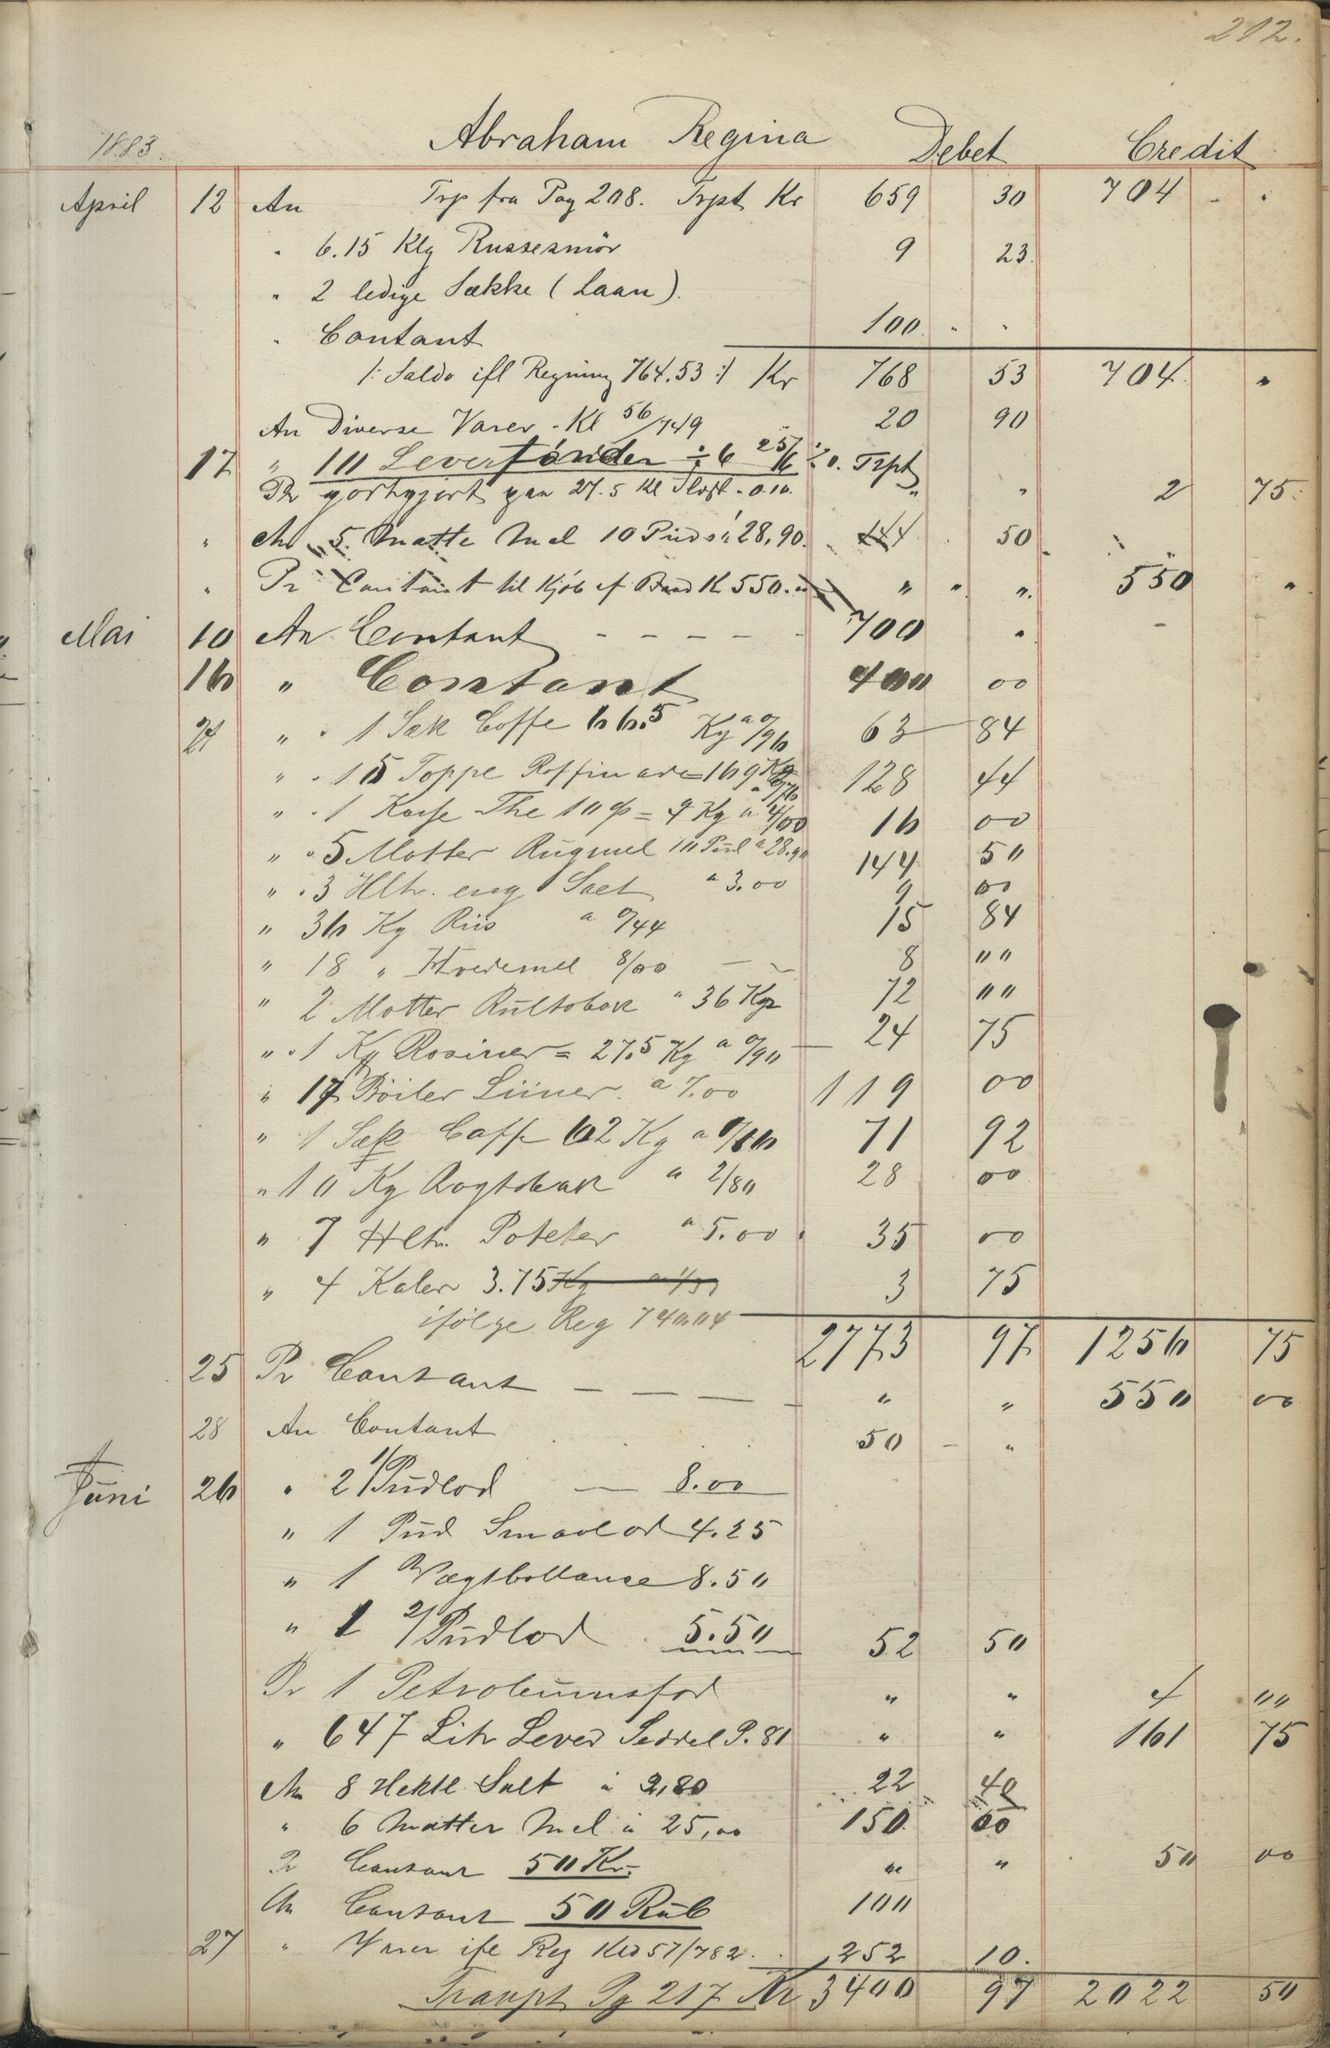 212.
1883. Abraham Regina Debet Credit
April 12 An Trp fra Pag 208. Trpt Kr 659 30 704 - "
" 6.15 Klg Russesmör 9 23
" 2 ledige Sække (Laan).
" Contant 100 " "
/: Saldo ifl Regning 764.53 :/ Kr 768 53 704 "
An Diverse Varer - Kl 56/749 20 90
17 " 10 Levertönder ÷ 6 Trpt
Pr godtgjort paa 27.5 Kl " " 2 75
" An 5 Matte Mel 10 Puds á 28,90. 144 50
" Pr Contant til Kjöb af Baad Kr 550. " " " 550 "
Mai 10 An Contant - - - - - 700 "
16 " Contant 400 00
21 " " 1 Sæk Coffe 66.5 Kg a 0/96 63 84
" " 15 Toppe Raffinade = 169 Kg a 0/76 128 44
" " 1 Kasse The 10 = 4 Kg a 4/00 16 00
" " 5 Motter Rugmel 10 Pud a 28.90 144 50
" " 3 Hltr. eng Salt a 3.00 9 00
" 36 Kg Riis a 0/44 15 84
" 18 " Hvedemel 8/00 - - 8 " "
" 2 Motter Rultobak " 36 Kgr 72 " "
" " 1 Kg Rosiner = 27.5 Kg a 0/90 - 24 75
" 17 Böiler Liiner a 7.00 119 00
" 1 Sæk Caffe 62 Kg a 71 92
" 10 Kg Rogtobak a 2/80 28 00
" 7 Hltr. Poteter a 5.00 " 35 00
" 4 3.75 Kg 3 75
ifölge Reg 740.04 2773 97 1256 75
25 Pr Contant - - - " " 550 00
28 An Contant 50 - "
Juni 26 " 2 1/Pudlod - 8.00
" 1 Pud Smaalod 4.25
" 1 Vægtballanse 8.50
" 1 2/Pudlod 5.50 52 50
Pr 1 Petroleumsfad " " 4 " "
" 647 Litr Lever Seddel P. 81 " " 161 75
An 8 Hektl. Salt á 2,80 22 40
" 6 Matter Mel á 25,00 150 00
Pr Contant 50 Kr. " " 50 00
An Contant 50 Rub 100
27 " Varer ifl Reg Klad 57/782. 252 10.
Transpt Pg 217 Kr 3400 97 2022 50